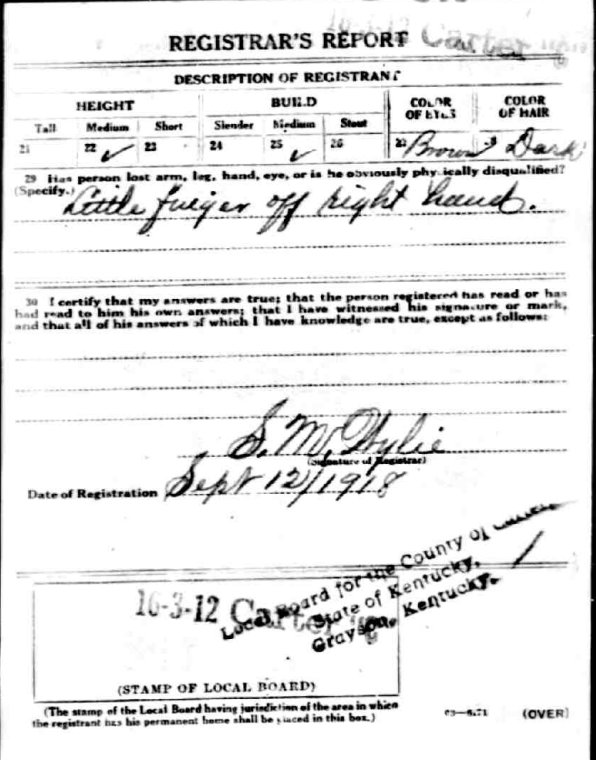 16-3-12 Carter
REGISTRAR'S REPORT
DESCRIPTION OF REGISTRANT
HEIGHT BUILD COLOR OF EYES COLOR OF HAIR
Tall Medium Short Slender Medium Stout
21 22 ✓ 23 24 25 ✓ 26 Brown Dark
29 Has person lost arm, leg, hand, eye, or is he obviously physically disqualified?
(Specify.) Little finger off right hand.
30 I certify that my answers are true; that the person registered has read or has
had read to him his own answers; that I have witnessed his signature or mark,
and that all of his answers of which I have knowledge are true, except as follows:
S. M. Wylie
(Signature of Registrar)
Date of Registration Sept 12/1918
Local Board for the County of
State of Kentucky,
Grayson, Kentucky.
16-3-12 Carter
(STAMP OF LOCAL BOARD)
(The stamp of the Local Board having jurisdiction of the area in which
the registrant has his permanent home shall be placed in this box.)
(OVER)